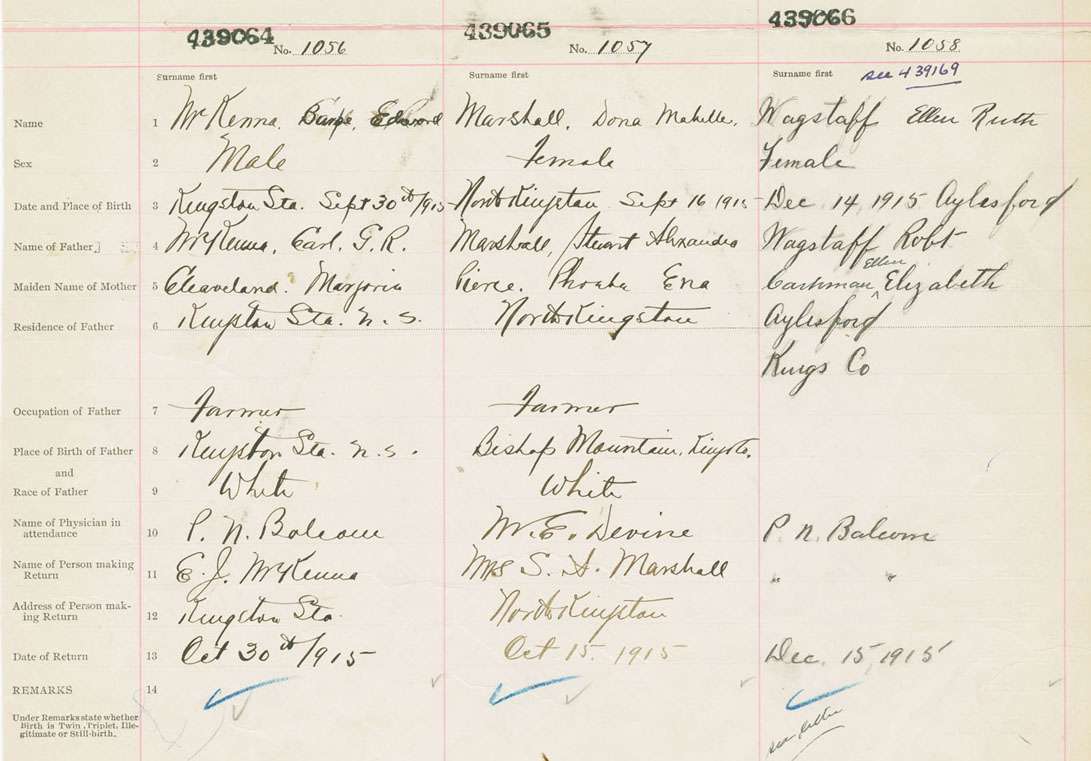 439064 439065 439066
No. 1056 No. 1057 No. 1058
Surname first Surname first Surname first see 439169
Name 1 McKenna, Edward Marshall, Dona Mabelle, Wagstaff Ellen Ruth
Sex 2 Male Female Female
Date and Place of Birth 3 Kingston Sta. Sept 30th/915 North Kingston Sept 16 1915 Dec. 14, 1915 Aylesford
Name of Father 4 McKenna, Carl. G. R. Marshall, Stewart Alexander Wagstaff Robt
Maiden Name of Mother 5 Cleaveland. Marjorie Pierce. Phoebe Ena Cashman Ellen Elizabeth
Residence of Father 6 Kingston Sta. N. S. North Kingston Aylesford
Kings Co
Occupation of Father 7 Farmer Farmer
Place of Birth of Father 8 Kingston Sta. N. S. Bishop Mountain, Kings Co.
and
Race of Father 9 White White
Name of Physician in
attendance 10 P. N. Balcom W. E. Devine P. N. Balcom
Name of Person making
Return 11 E. J. McKenna Mrs S. A. Marshall " "
Address of Person mak-
ing Return 12 Kingston Sta. North Kingston
Date of Return 13 Oct 30th/915 Oct 15. 1915 Dec. 15, 1915
REMARKS 14
Under Remarks state whether
Birth is Twin, Triplet, Ille-
gitimate or Still-birth.
see letter